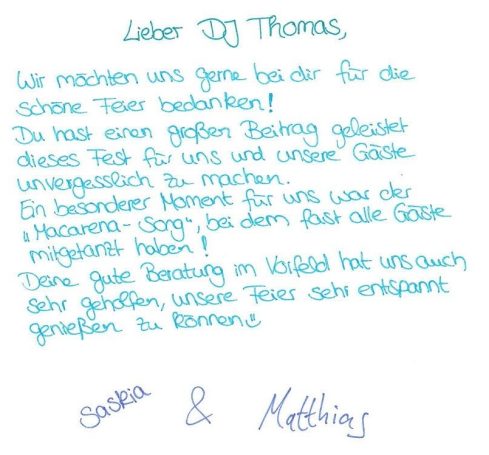 Lieber DJ Thomas,
Wir möchten uns gerne bei dir für die
schöne Feier bedanken!
Du hast einen großen Beitrag geleistet
dieses Fest für uns und unsere Gäste
unvergesslich zu machen.
Ein besonderer Moment für uns war der
„Macarena-Song", bei dem fast alle Gäste
mitgetanzt haben!
Deine gute Beratung im Vorfeld hat uns auch
sehr geholfen, unsere Feier sehr entspannt
genießen zu können☺
Saskia & Matthias